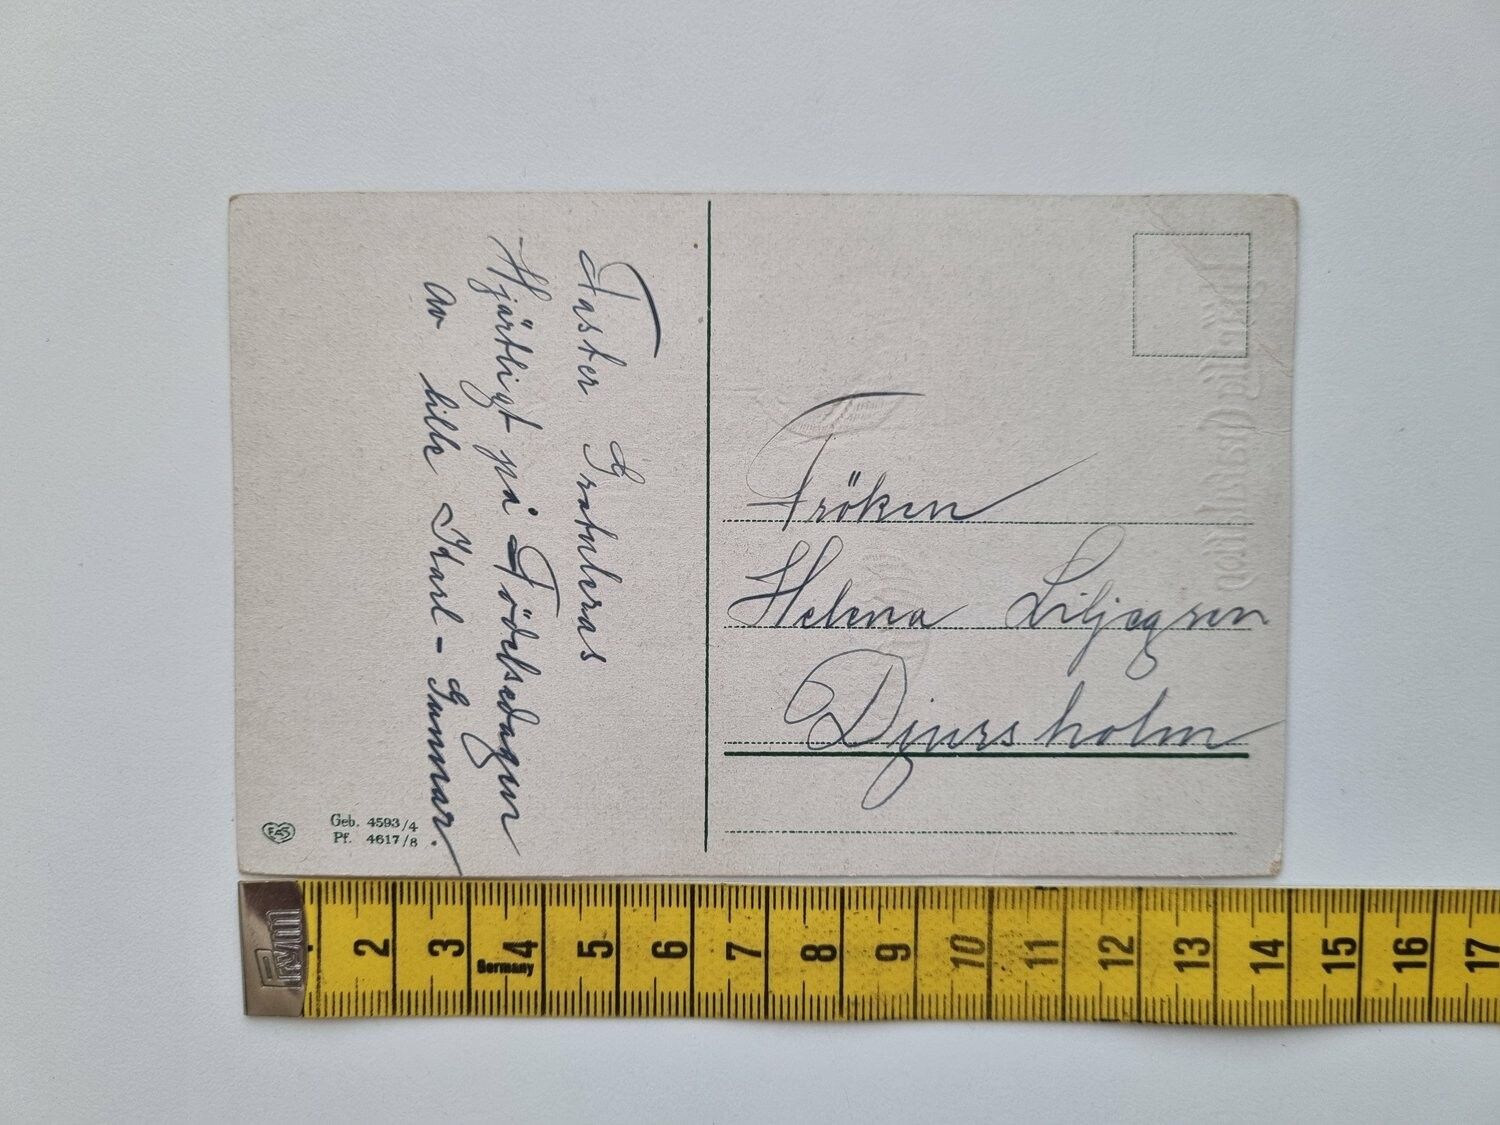 Faster Gratuleras
Hjärtligt på Födelsedagen
av lille Karl-Gunnar.
Fröken
Helena Liljegren
Djursholm
EAS
Geb. 4593/4
Pf. 4617/8
Prym
2 3 4 5 6 7 8 9 10 11 12 13 14 15 16 17
Germany